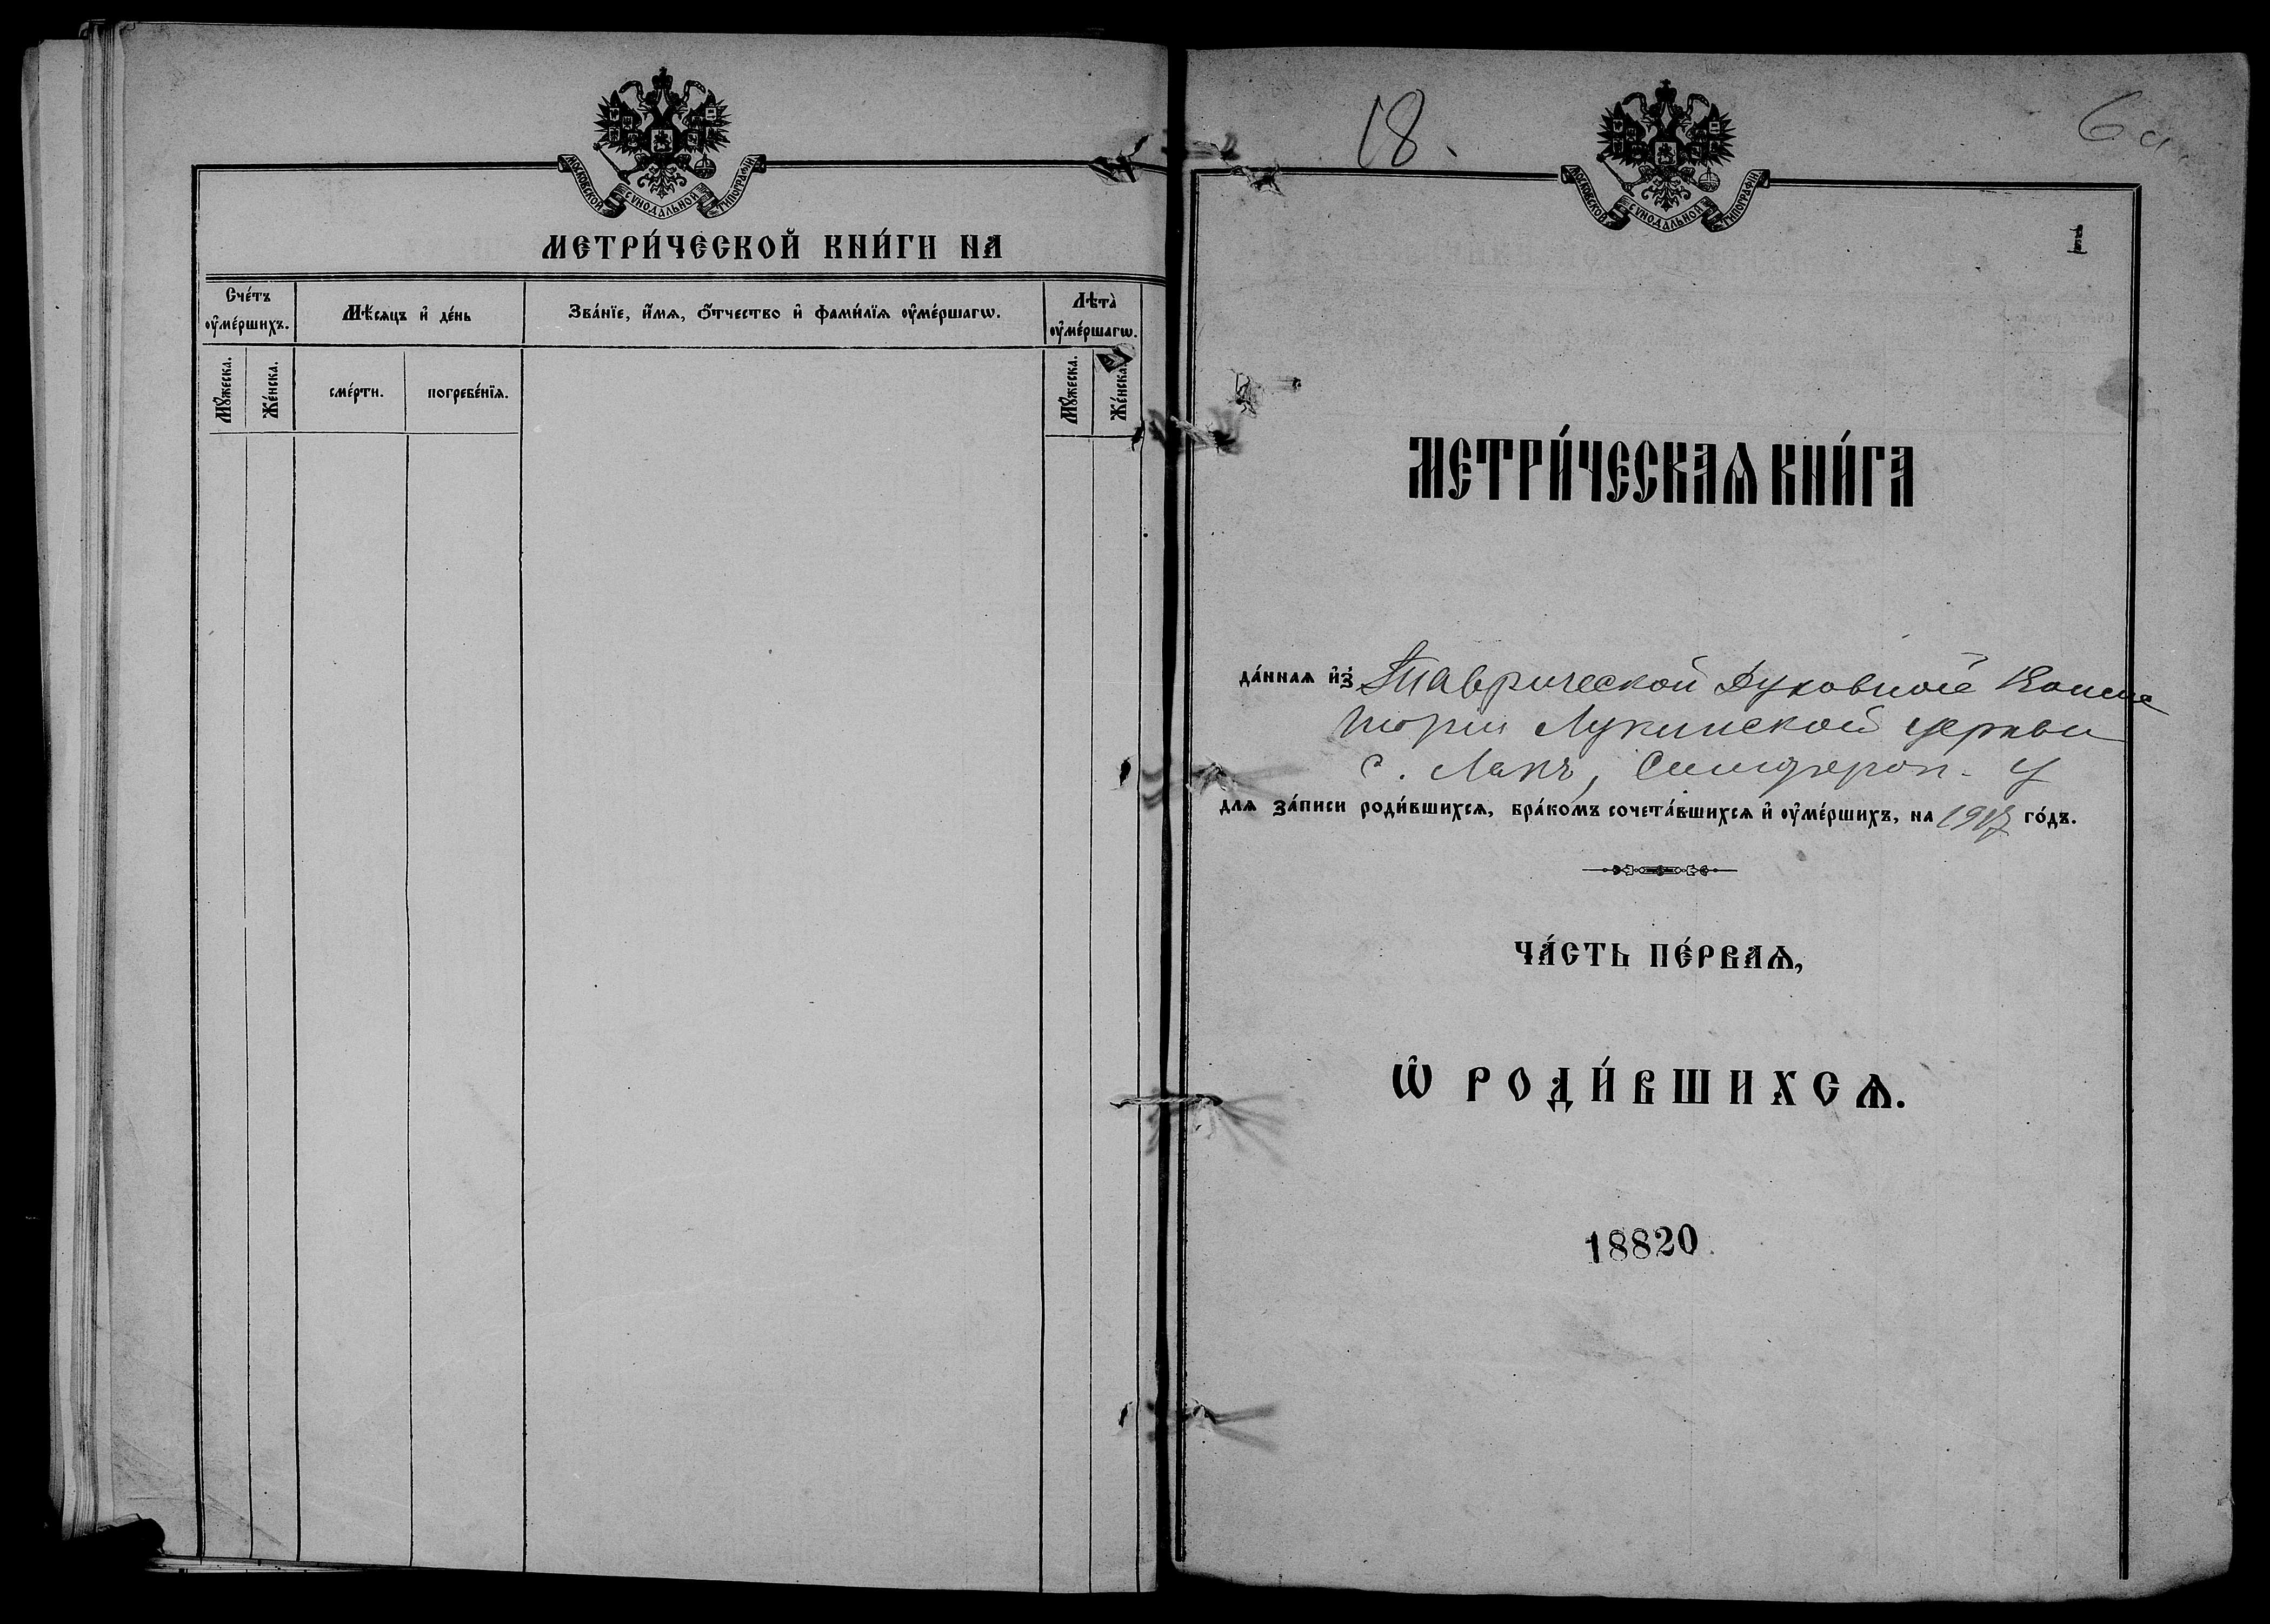 МОСКОВСКОЙ СѴНОДАЛЬНОЙ ТИПОГРАФІИ
МЕТРИ́ЧЕСКОЙ КНИ́ГИ НА
Сче́тъ ᲂу҆ме́ршихъ.
Мѣ́сяцъ и҆ де́нь
Зва́нїе, и҆́мѧ, ѻ҆́тчество и҆ фами́лїѧ ᲂу҆ме́ршагѡ.
Лѣта̀ ᲂу҆ме́ршагѡ.
Мꙋ́жеска.
Же́нска.
сме́рти.
погребе́нїѧ.
Мꙋ́жеска.
Же́нска.
18.
6
МОСКОВСКОЙ СѴНОДАЛЬНОЙ ТИПОГРАФІИ
1
МЕТРИ́ЧЕСКАѦ КНИ́ГА
да́ннаѧ и҆з̾ Таврической Духовной Консис
торіи Лукинской церкви
с. Лакъ, Симфероп. у
длѧ за́писи роди́вшихсѧ, бра́комъ сочета́вшихсѧ и҆ ᲂу҆ме́ршихъ, на 1917 го́дъ.
ЧА́СТЬ ПЕ́РВАѦ,
Ѽ РОДИ́ВШИХСѦ.
18820